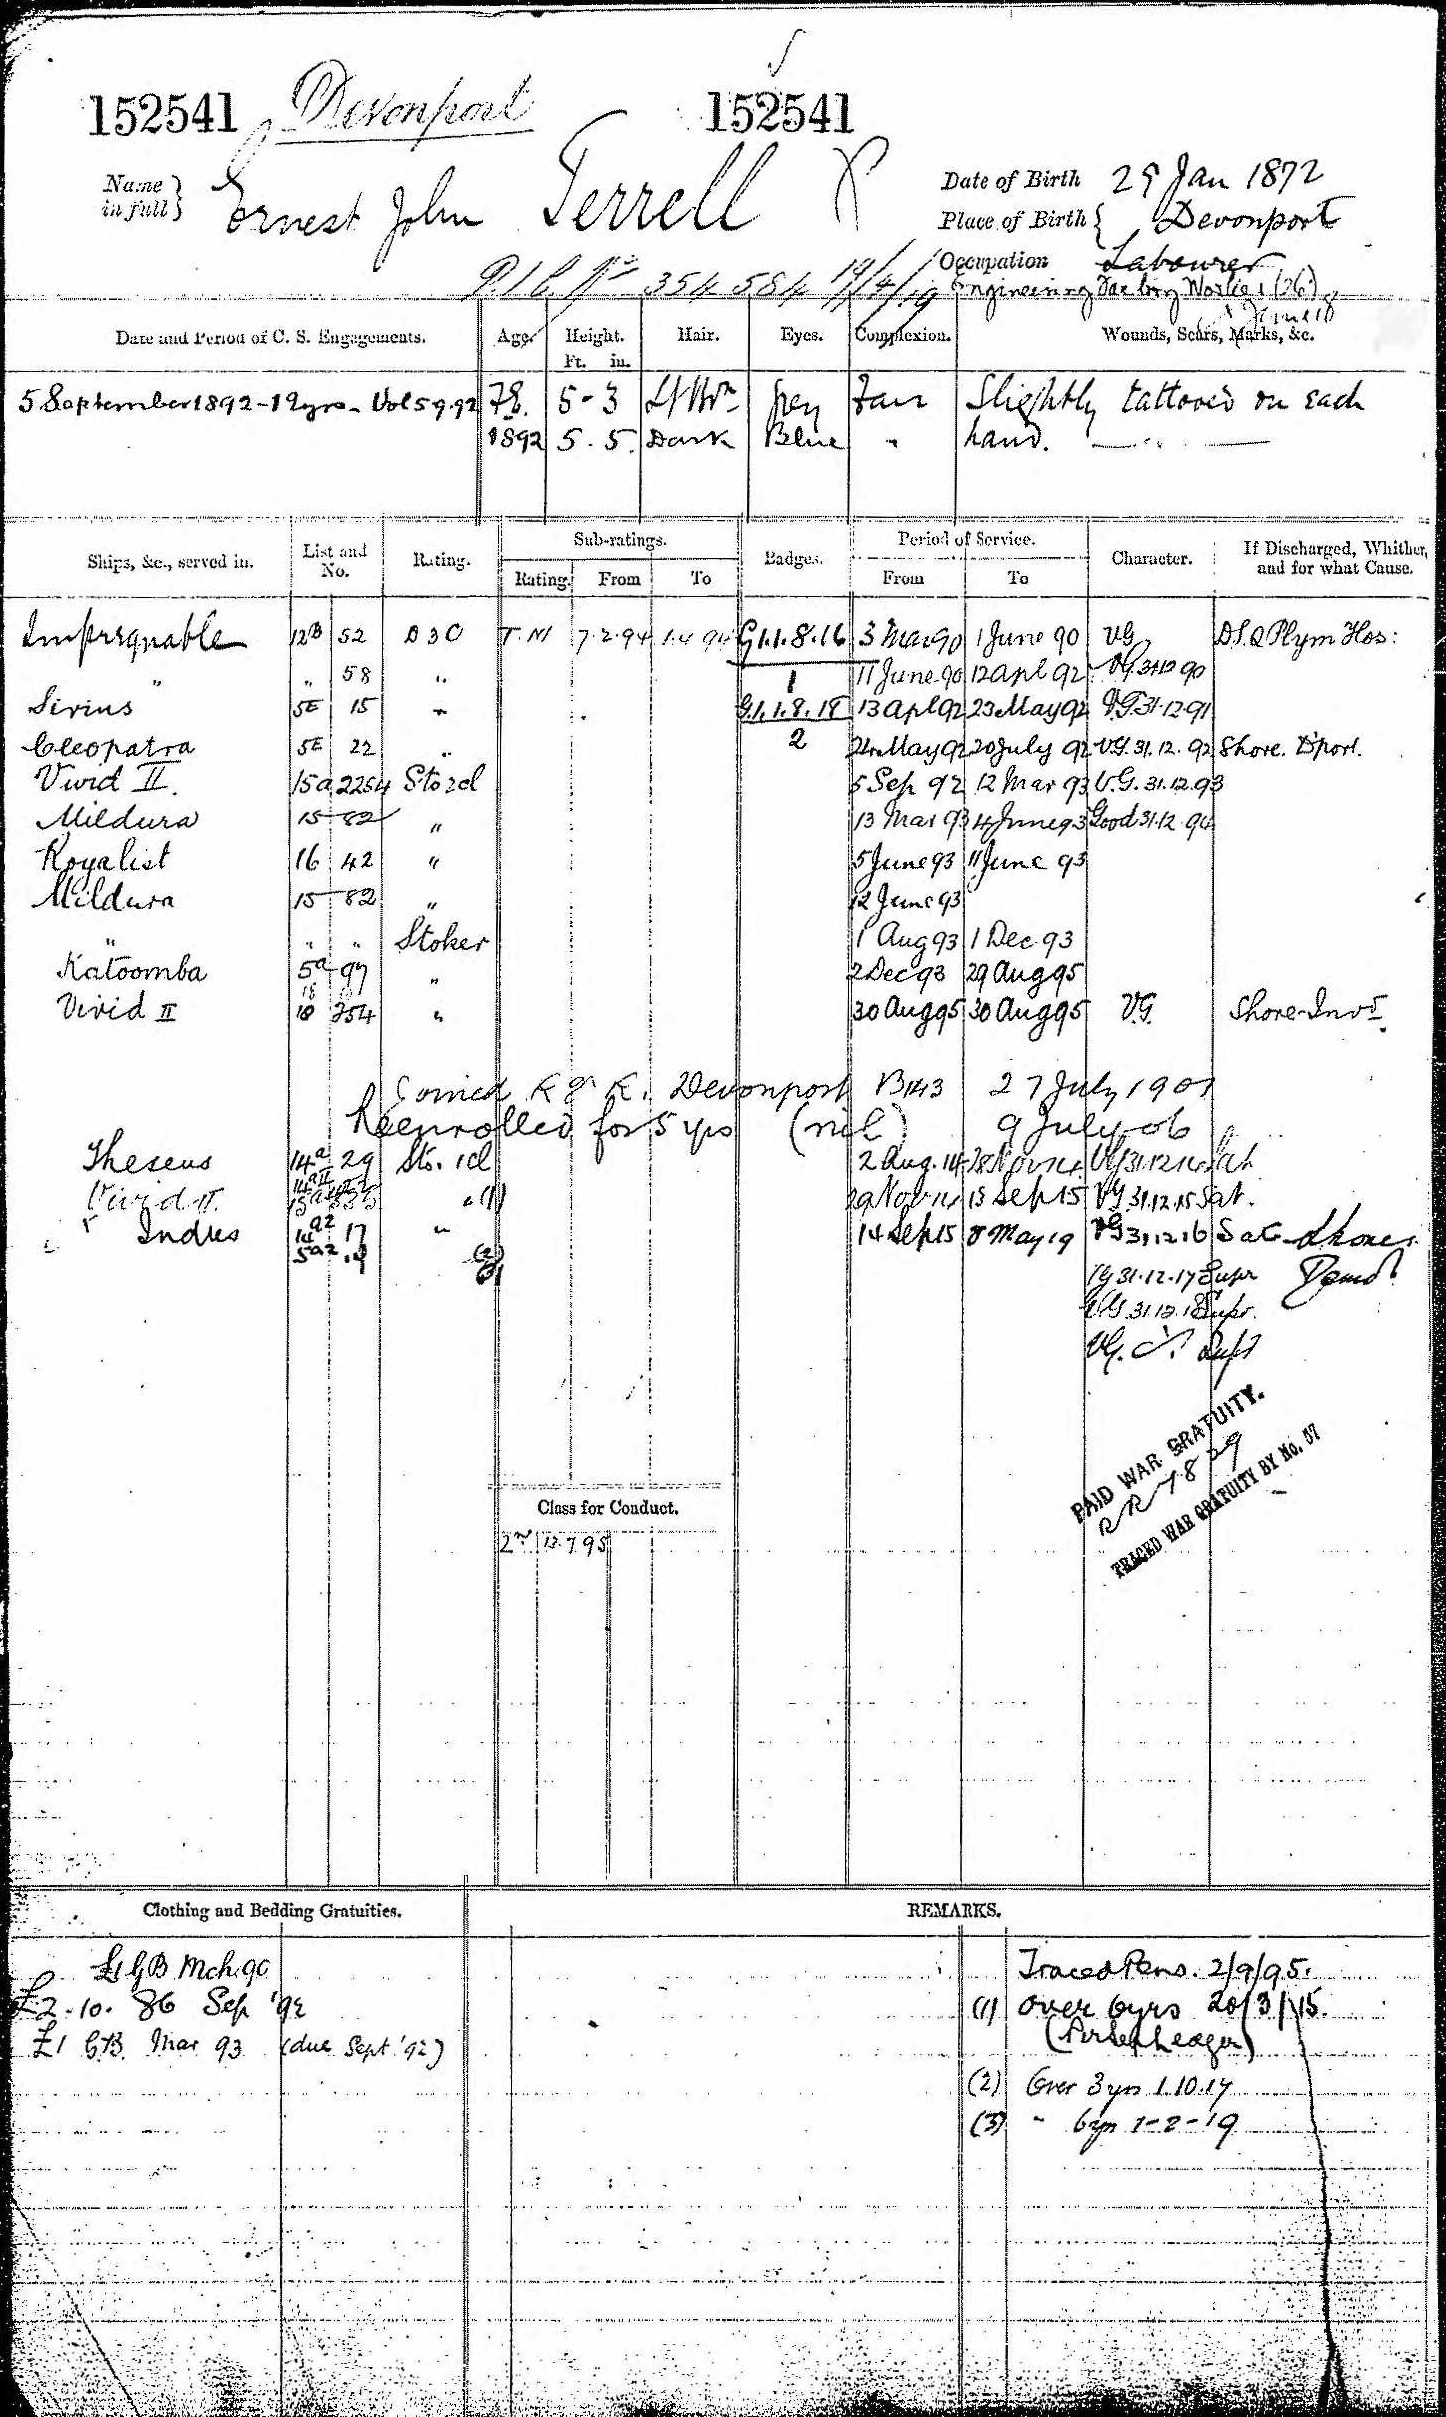 152541 Devonport 152541
Name in full } Ernest John Terrell
Date of Birth 29 Jan 1872
Place of Birth { Devonport
Occupation Labourer
Engineering Factory Worker (26)
354584 19/4/19
Date and Period of C. S. Engagements. Age. Height. Ft. in. Hair. Eyes. Complexion. Wounds, Scars, Marks, &c.
5 September 1892 - 12 yrs - Vol 5 9.92 5 - 3 Lt Brn Grey Fair Slightly tattooed on each
1892 5 . 5. Dark Blue " hand. — " —
Ships, &c., served in. List and No. Rating. Sub-ratings. Rating. From To Badges. Period of Service. From To Character. If Discharged, Whither, and for what Cause.
Impregnable 12B 52 B 3 C T.M 7.2.94 1.4.94 G.1.1.8.16 3 Mar 90 1 June 90 VG D.S.Q Plym Hos:
" " 58 " 1 11 June 90 12 Apl 92 VG 31.12.90
Sirius 5E 15 " G.1.1.8.18 13 Apl 92 23 May 92 VG 31.12.91
Cleopatra 5E 22 " 2 24 May 92 20 July 92 VG. 31.12.92 Shore. D'port.
Vivid II. 15a 2254 Sto 2cl 5 Sep 92 12 Mar 93 V.G. 31.12.93
Mildura 15 82 " 13 Mar 93 4 June 93 Good 31.12.94
Royalist 16 42 " 5 June 93 11 June 93
Mildura 15 82 " 12 June 93
" " " Stoker 1 Aug 93 1 Dec 93
Katoomba 5a 97 " 2 Dec 93 29 Aug 95
Vivid II 18 354 " 30 Aug 95 30 Aug 95 V.G. Shore-Invd.
Joined R F R. Devonport B1143 27 July 1901
Reenrolled for 5 yrs (nil) 9 July 06
Theseus 14a 29 Sto. 1cl 2 Aug. 14 28 Nov 14 VG 31.12.14 Sat
Vivid II. " (1) 29 Nov 14 13 Sep 15 VG 31.12.15 Sat.
Indus 14a2 17 " 14 Sep 15 8 May 19 VG 31.12.16 Sat Shore
5a2 (2) VG 31.12.17 Supr Demobd
VG 31.12.18 Supr.
VG. Supr
PAID WAR GRATUITY.
TRACED WAR GRATUITY BY No. 57
Class for Conduct.
2nd 13.7.95
Clothing and Bedding Gratuities. REMARKS.
£1 GB Mch. 90 Traced Pens. 2/9/95.
£2.10. 86 Sep '92 (1) Over 6yrs 20/3/15.
£1 G.B. Mar 93 (due Sept '92)
(2) Over 3 yrs 1.10.17
(3) " 6 yrs 1-2-19